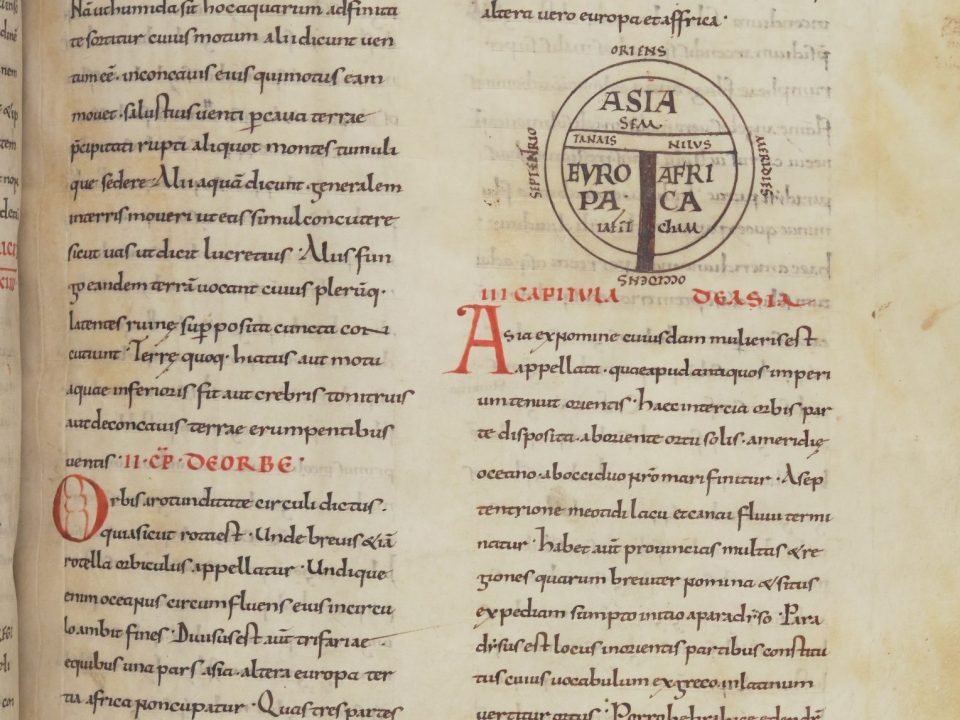 Nā ut humida sit hoc aquarum adfinita
te sortitur cuius motum alii dicunt ven
tum eē · in concavis eius qui motus eam
movet · salustius venti p cava terrae
p̄cipitati rupti aliquot montes tumuli
que sedere · Alii aquā dicunt · generalem
in terris moveri ut eas simul concutere
sicut vas ut dicit lucretius · Alii sfun
go eandem terrā vocant cuius plerūq·
latentes ruinę sup posita cuncta con
cutiunt · Terrę quoq· hiatus aut motu
aquae inferioris fit aut crebris tonitruis
aut de concavis terrae erumpentibus
ventis · II · CP̄ · DE ORBE ·
Orbis a rotunditate circuli dictus ·
quia sicut rota est · Unde brevis & iā
rotella orbiculus appellatur · Undique
enim oceanus circumfluens eius in circu
lo ambit fines · Divisus est aut̄ trifariae
e quibus una pars asia · altera europa ter
tia africa noncupatur · Quas tres partes
altera vero europa et affrica ·
ORIENS
ASIA
SEM
TANAIS NILUS
SEPTENTRIO
MERIDIES
EVRO AFRI
PA · CA
iafet cham
OCCIDENS
III CAPITULA DE ASIA
Asia ex nomine cuiusdam mulieris est
appellata · quae apud antiquos imperi
um tenuit orientis · haec in tercia orbis par
te disposita · ab oriente ortu solis · a meridię
oceano · ab occiduo nr̄o mari finitur · A sep
tentrione meotidi lacu et canai fluvii termi
natur · habet aut̄ provincias multas & re
giones quarum breviter nomina & situs
expediam sumpto initio a paradr̄so · Para
dr̄sus est locus in orientis partibus constitu
tus cuius vocabulum ex greco in latinum
vertitur ortus · Porro hebraice eden dr̄